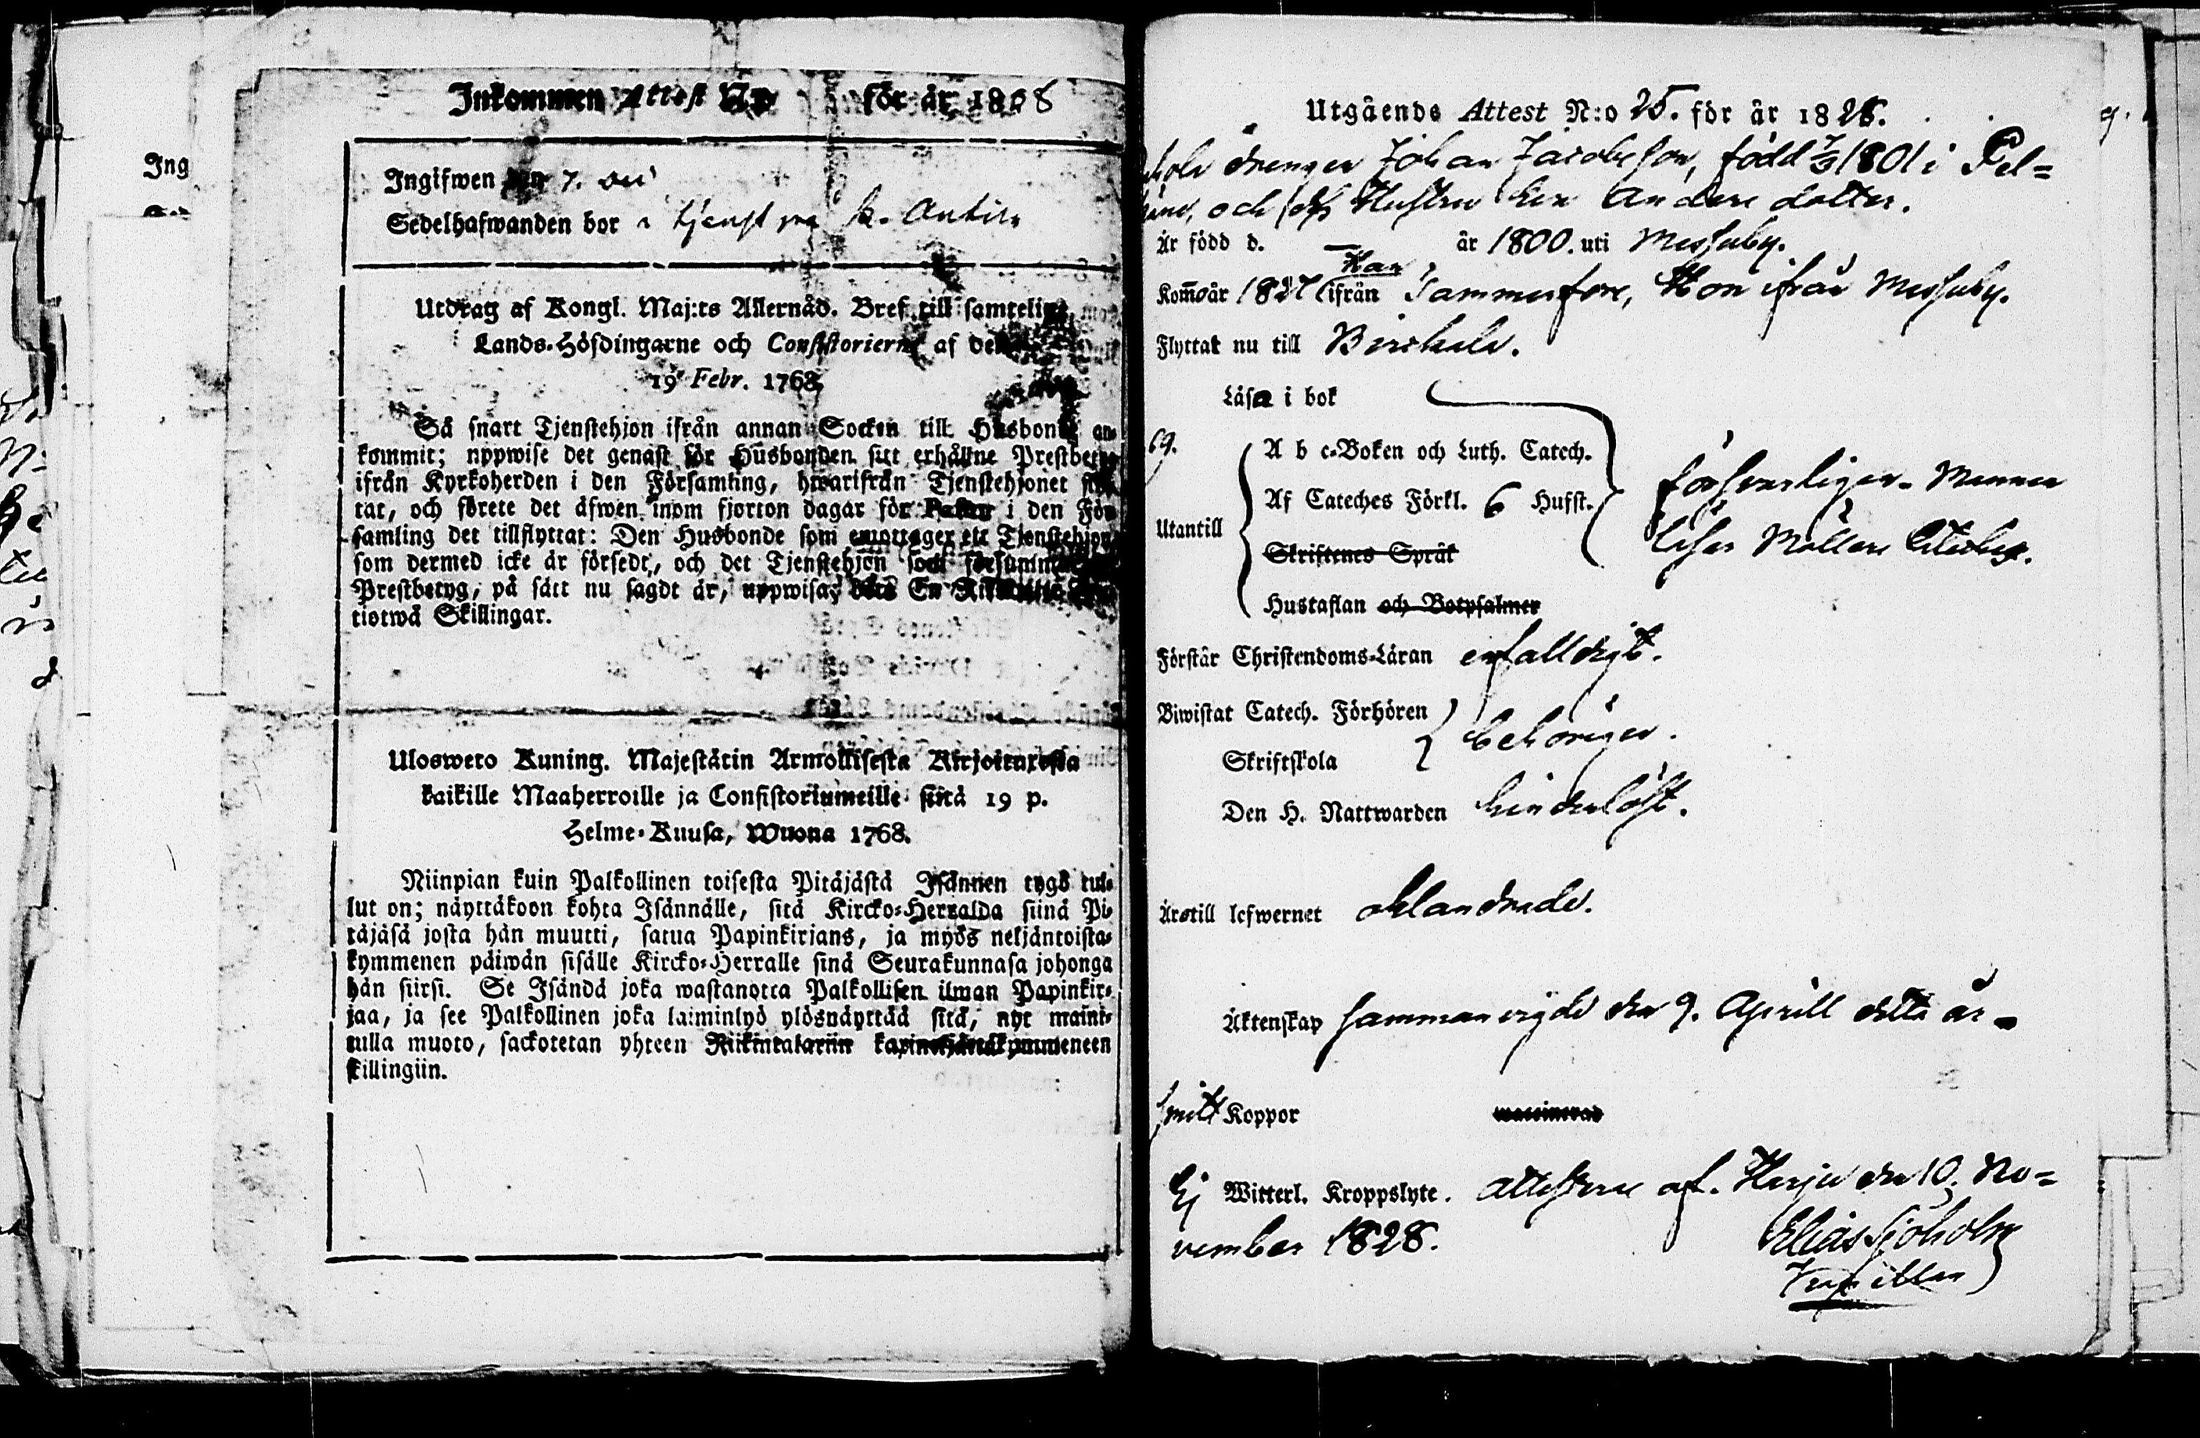 Ing
Inkommen Attest N:o för år 1808
Ingifwen den 7.
Sedelhafwanden bor i tjenst
Utdrag af Kongl. Maj:ts Allernåd. Bref till samtelige
Lands-Höfdingarne och Consistorierne af den
19 Febr. 1768.
Så snart Tjenstehjon ifrån annan Socken till Husbonde an-
kommit; uppwise det genast för Husbonden sitt erhållne Prestbetyg
ifrån Kyrkoherden i den Församling, hwarifrån Tjenstehjonet flyt-
tat, och förete det äfwen inom fjorton dagar för i den För-
samling det tillflyttat: Den Husbonde som emottager ett Tjenstehjon
som dermed icke är försedt, och det Tjenstehjon som försummar
Prestbetyg, på sätt nu sagdt är, uppwisa, En
tiotwå Skillingar.
Ulosweto Kuning. Majestätin Armollisesta Kirjoituxesta
kaikille Maaherroille ja Consistoriumeille siitä 19 p.
Helme-Kuusa, Wuona 1768.
Niinpian kuin Palkollinen toisesta Pitäjästä Isännen tygö tul-
lut on; näyttäkoon kohta Isännälle, sitä Kircko-Herralda siinä Pi-
täjäsä josta hän muutti, saatua Papinkirjans, ja myös neljäntoista-
kymmenen päiwän sisälle Kircko-Herralle sinä Seurakunnasa johonga
hän siirsi. Se Isändä joka wastanotta Palkollisen ilman Papinkir-
jaa, ja see Palkollinen joka laiminlyö ylösnäyttää sitä, nyt maini-
tulla muoto, sackotetan yhteen Riikintalariin
skillingiin.
Utgåends Attest N:o 25. för år 1828.
drengen Johan Jacobsson, född 7/3 1801 i Pel-
och dess Hustru Anders dotter.
Är född d. — år 1800. uti Messuby.
Han
Kom̄o år 1827 ifrån Tammerfors, Hon ifrån Messuby.
Flyttat nu till Birkala.
Läsa i bok
A b c-Boken och Luth. Catech.
Af Cateches Förkl. 6 Hufst. försvarligen. Mannen
Utantill
Skriftenes Språk läser Möllers
Hustaflan och Botpsalmer
Förstår Christendoms-Läran enfalldigt.
Biwistat Catech. Förhören
Skriftskola behörigen.
Den H. Nattwarden hinderlöst.
Äro till lefwernet oklandrade.
Äktenskap sammanvigde den 9. Aprill detta år
Koppor
Ej Witterl. Kroppslyte. af. Harju den 10. No-
vember 1828.
Elias Sjöholm